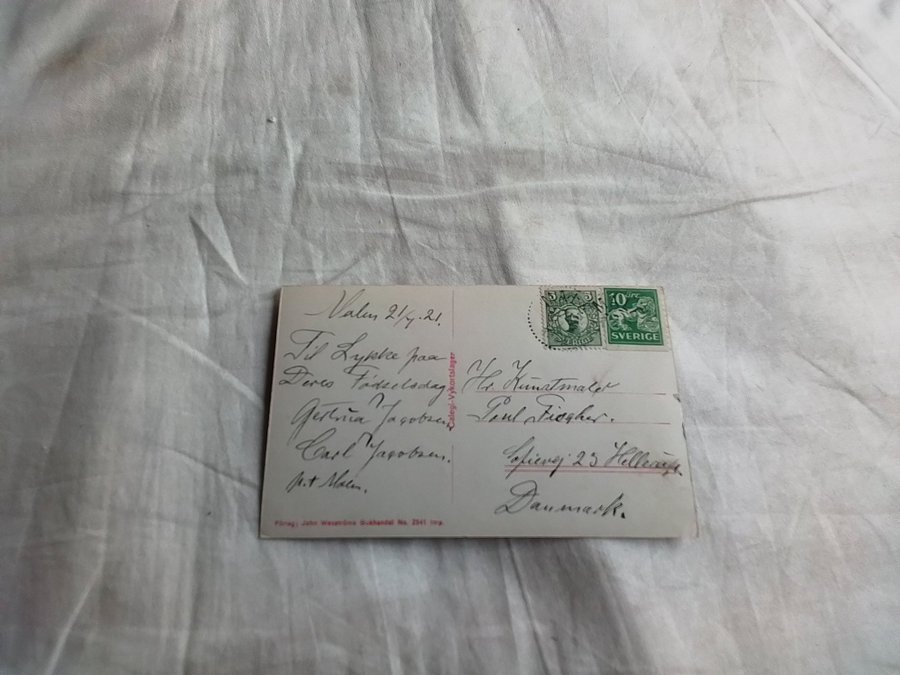 21/4.21.
Til Lykke paa
Deres Födselsdag
Gertrud Jacobsen
Carl Jacobsen.
p.t.
Calegi-Vykortslager
5 5
SVERIGE
10 ÖRE
SVERIGE
Hr. Kunstmaler
Paul Fischer.
Sofievej 23 Hellerup
Danmark.
Förlag: John
Bokhandel No. 2941 Imp.